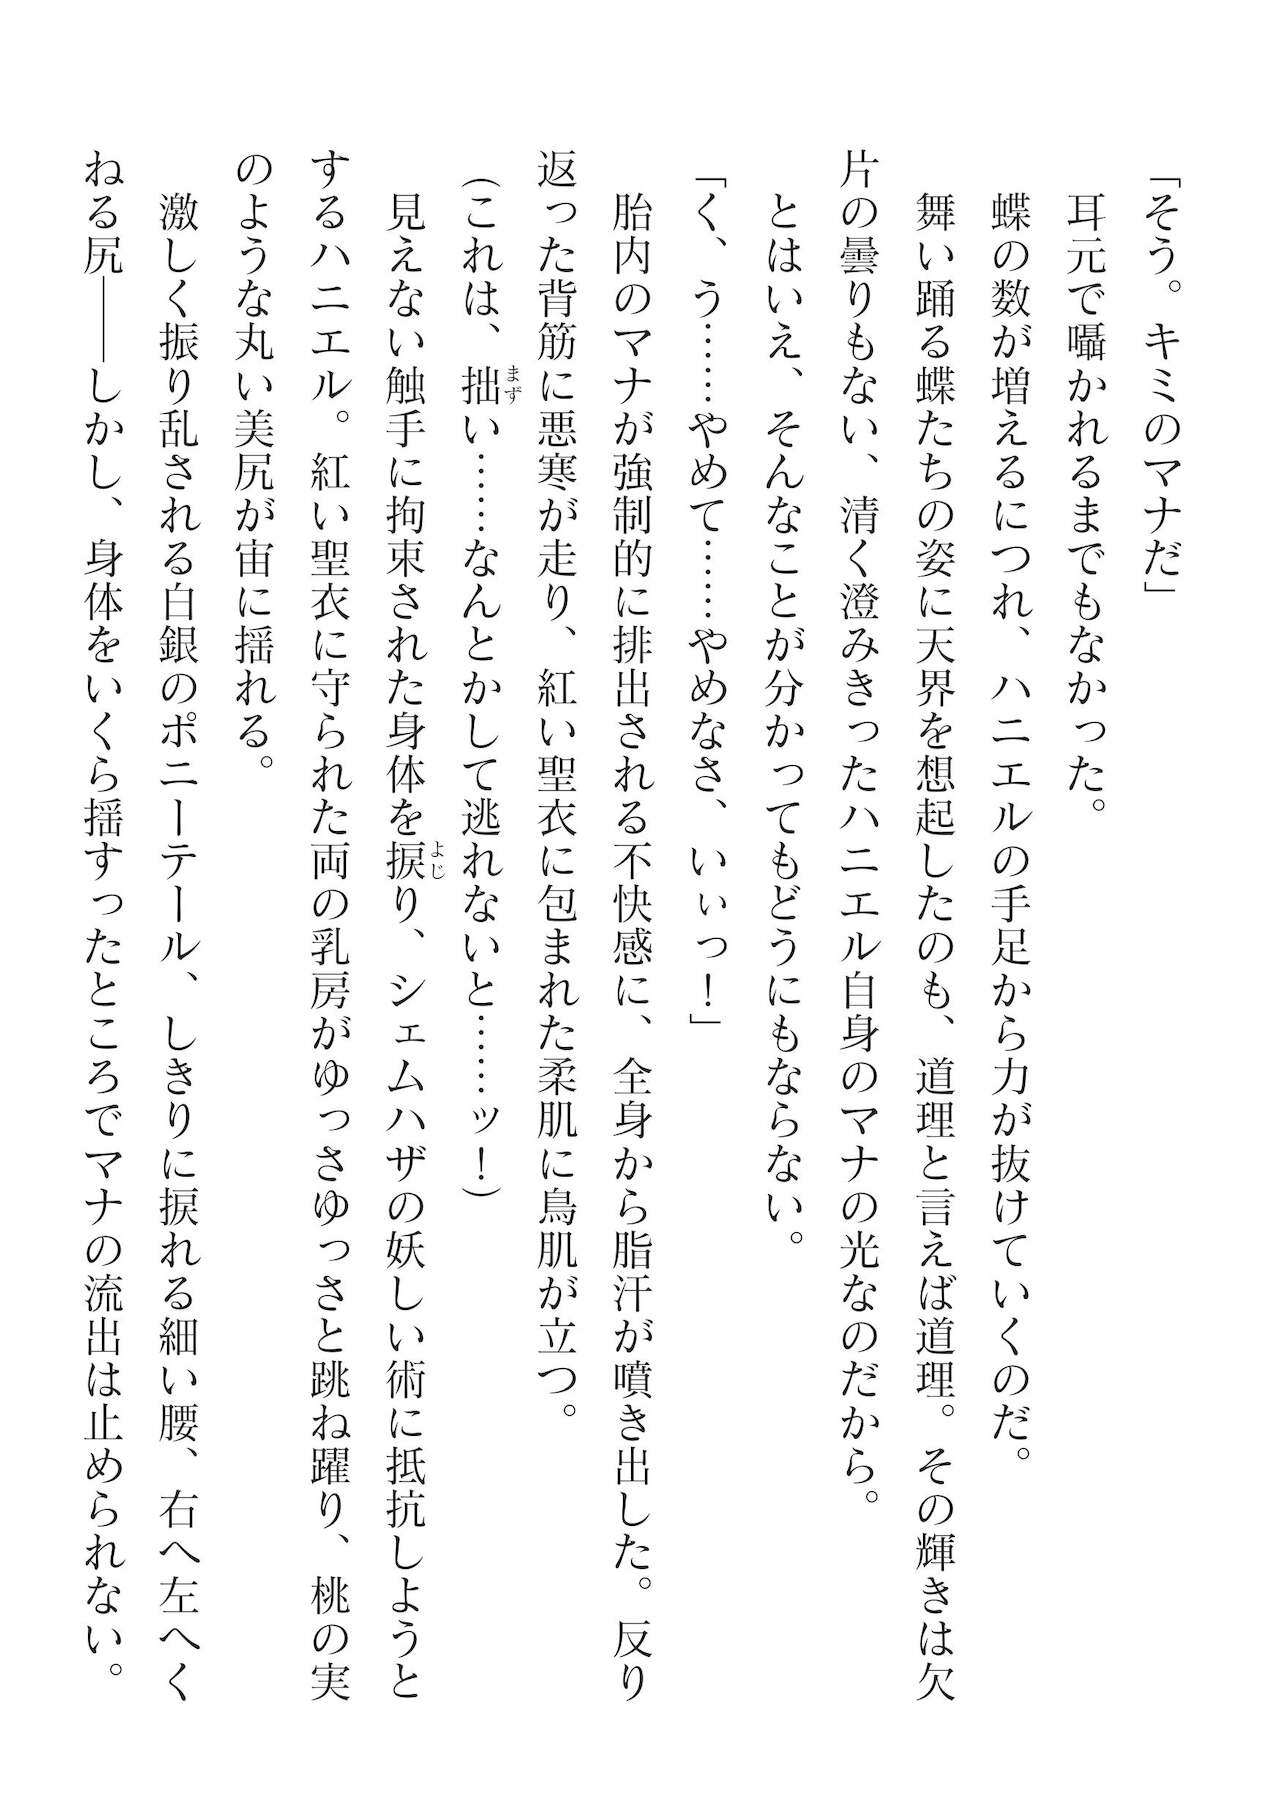 「そう。キミのマナだ」
耳元で囁かれるまでもなかった。
蝶の数が増えるにつれ、ハニエルの手足から力が抜けていくのだ。
舞い踊る蝶たちの姿に天界を想起したのも、道理と言えば道理。その輝きは欠
片の曇りもない、清く澄みきったハニエル自身のマナの光なのだから。
とはいえ、そんなことが分かってもどうにもならない。
「く、う……やめて……やめなさ、いぃっ！」
胎内のマナが強制的に排出される不快感に、全身から脂汗が噴き出した。反り
返った背筋に悪寒が走り、紅い聖衣に包まれた柔肌に鳥肌が立つ。
（これは、拙まずい……なんとかして逃れないと……ッ！）
見えない触手に拘束された身体を捩よじり、シェムハザの妖しい術に抵抗しようと
するハニエル。紅い聖衣に守られた両の乳房がゆっさゆっさと跳ね躍り、桃の実
のような丸い美尻が宙に揺れる。
激しく振り乱される白銀のポニーテール、しきりに捩れる細い腰、右へ左へく
ねる尻――しかし、身体をいくら揺すったところでマナの流出は止められない。